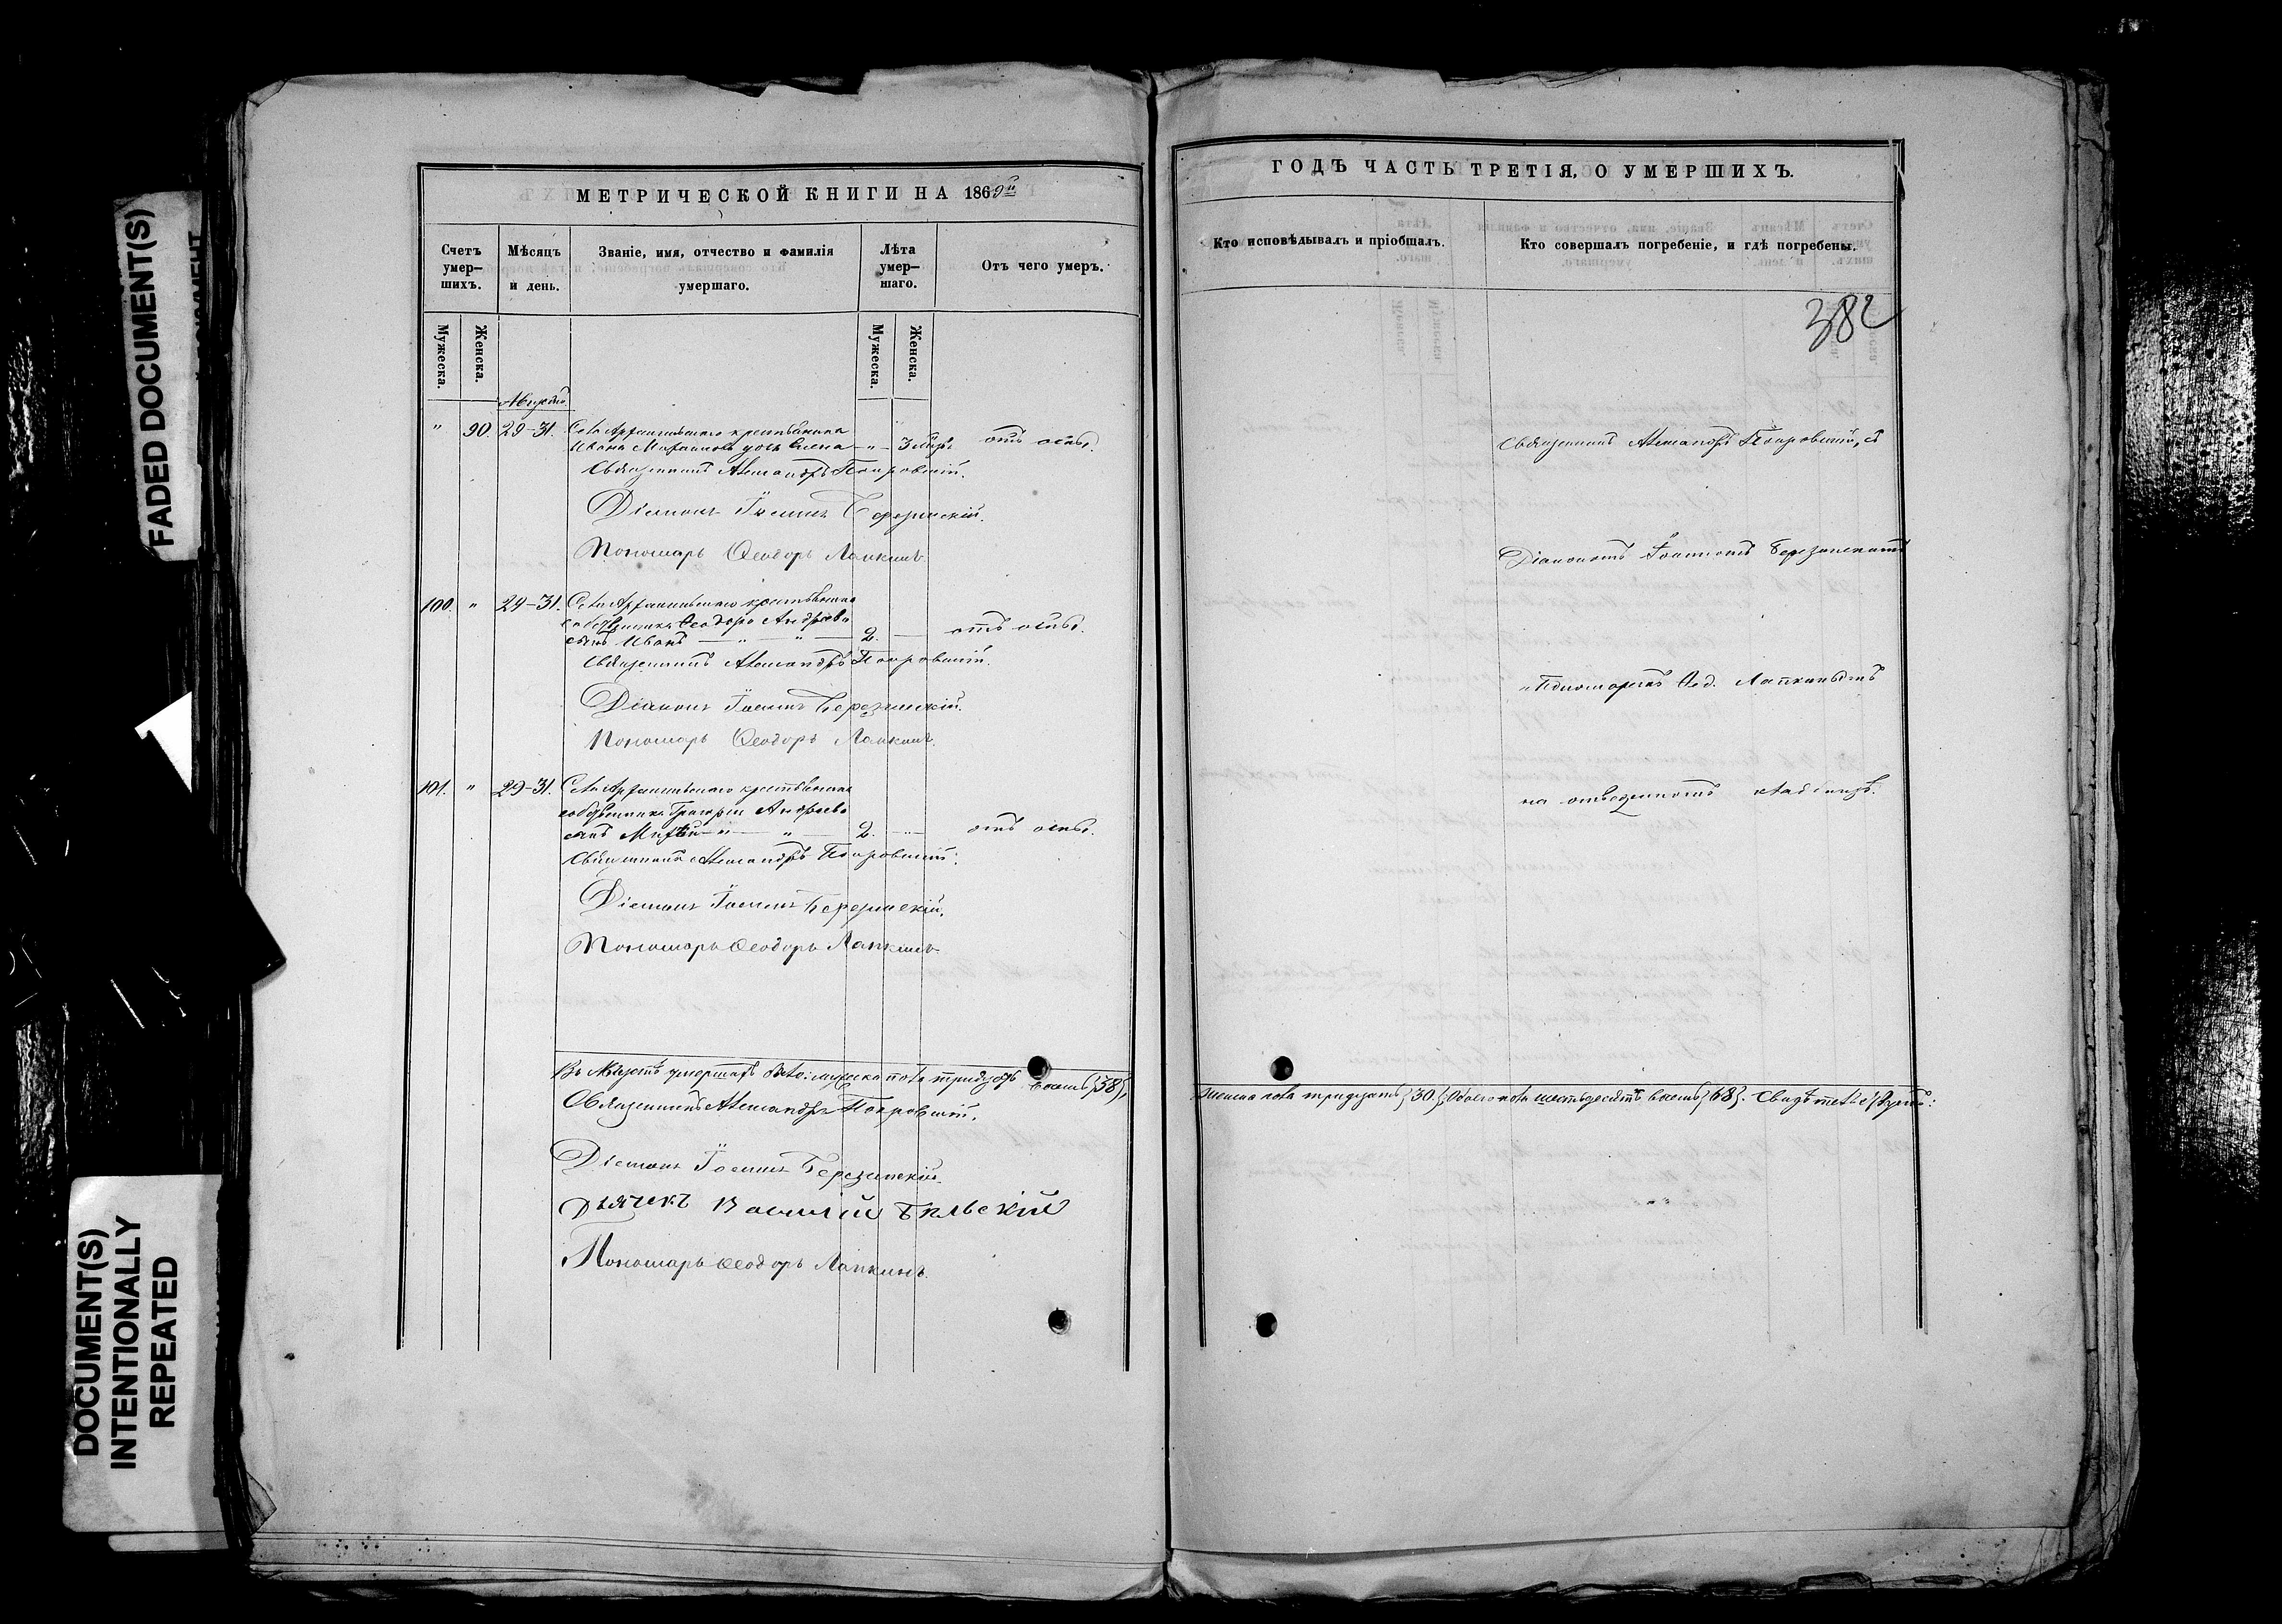 FADED DOCUMENT(S)
DOCUMENT(S)
INTENTIONALLY
REPEATED
МЕТРИЧЕСКОЙ КНИГИ НА 1869й
Счетъ умер-шихъ.
Мѣсяцъ и день.
Званіе, имя, отчество и фамилія умершаго.
Лѣта умер-шаго.
Отъ чего умеръ.
Мужеска.
Женска.
Мужеска.
Женска.
Августъ.
" 90. 29-31. Села крестьянина
Ивана дочь Елена — " — 3 отъ оспы.
Священникъ Александръ Покровскій.
Діаконъ Іоаннъ Березинскій.
Пономарь Ѳеодоръ Лапкинъ.
100. " 29-31. Села крестьянина
собственника Ѳеодора Андреева
сынъ Иванъ — " — " — 2. — отъ оспы.
Священникъ Александръ Покровскій.
Діаконъ Іоаннъ Березинскій.
Пономарь Ѳеодоръ Лапкинъ.
101. " 29-31. Села крестьянина
собственника Григорія Андреева
сынъ — " — " — 2. — " — отъ оспы.
Священникъ Александръ Покровскій.
Діаконъ Іоаннъ Березинскій.
Пономарь Ѳеодоръ Лапкинъ.
Въ Августѣ умершихъ было: мужеска пола тридцать восемь {38},
Священникъ Александръ Покровскій.
Діаконъ Іоаннъ Березинскій.
Дьячекъ Василій Бѣльскій
Пономарь Ѳеодоръ Лапкинъ.
ГОДЪ ЧАСТЬ ТРЕТІЯ, О УМЕРШИХЪ.
Кто исповѣдывалъ и пріобщалъ.
Кто совершалъ погребеніе, и гдѣ погребены.
382
Священникъ Александръ Покровскій, съ
Діакономъ Іоанномъ Березинскимъ
и Пономаремъ Ѳед. Лапкинымъ
на отведенномъ кладбищѣ.
женска пола тридцать {30}, Обоего пола шестьдесятъ восемь {68}.